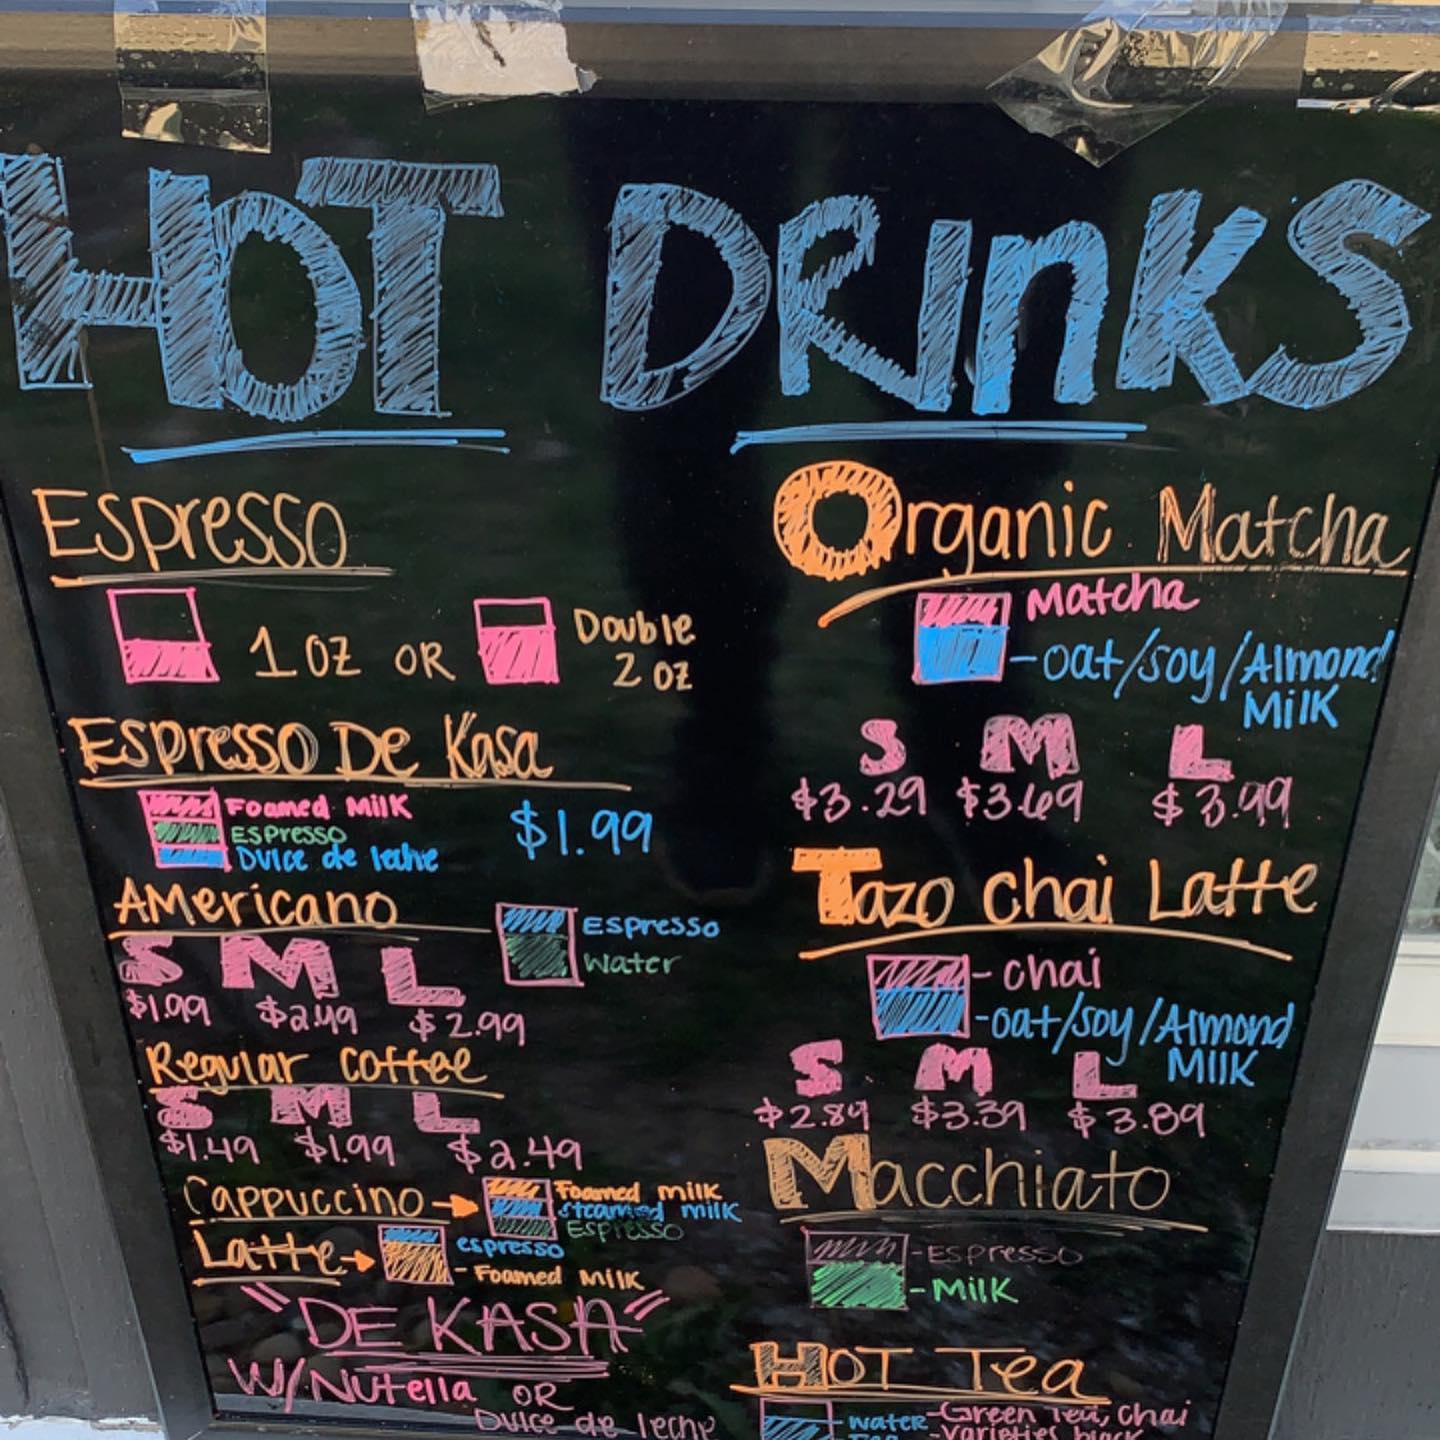 HOT DRINKS
Espresso
1 oz OR Double
2 oz
Espresso De Kasa
Foamed Milk
Espresso
Dulce de leche
$1.99
Americano
Espresso
Water
S M L
$1.99 $2.49 $2.99
Regular Coffee
S M L
$1.49 $1.99 $2.49
Cappuccino
Foamed milk
steamed milk
Espresso
Latte
espresso
- Foamed Milk
"DE KASA"
W/Nutella OR
Dulce de leche
Organic Matcha
Matcha
- oat/soy/Almond
Milk
S M L
$3.29 $3.69 $3.99
Tazo Chai Latte
- chai
- oat/soy/Almond
Milk
S M L
$2.89 $3.39 $3.89
Macchiato
- Espresso
- Milk
HOT Tea
water - Green Tea, Chai
Tea - Varieties, black